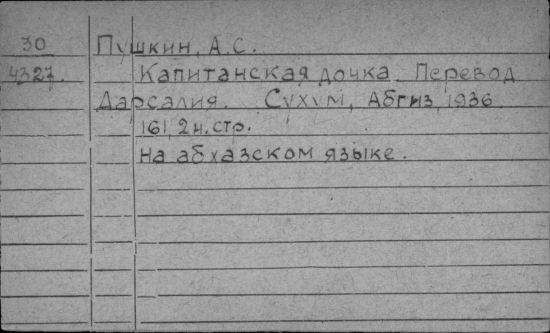 30 Пушкин, А.С.
4327. Капитанская дочка. Перевод
Дарсалия. Сухум, Абгиз, 1936
161, 2 н. стр.
На абхазском языке.